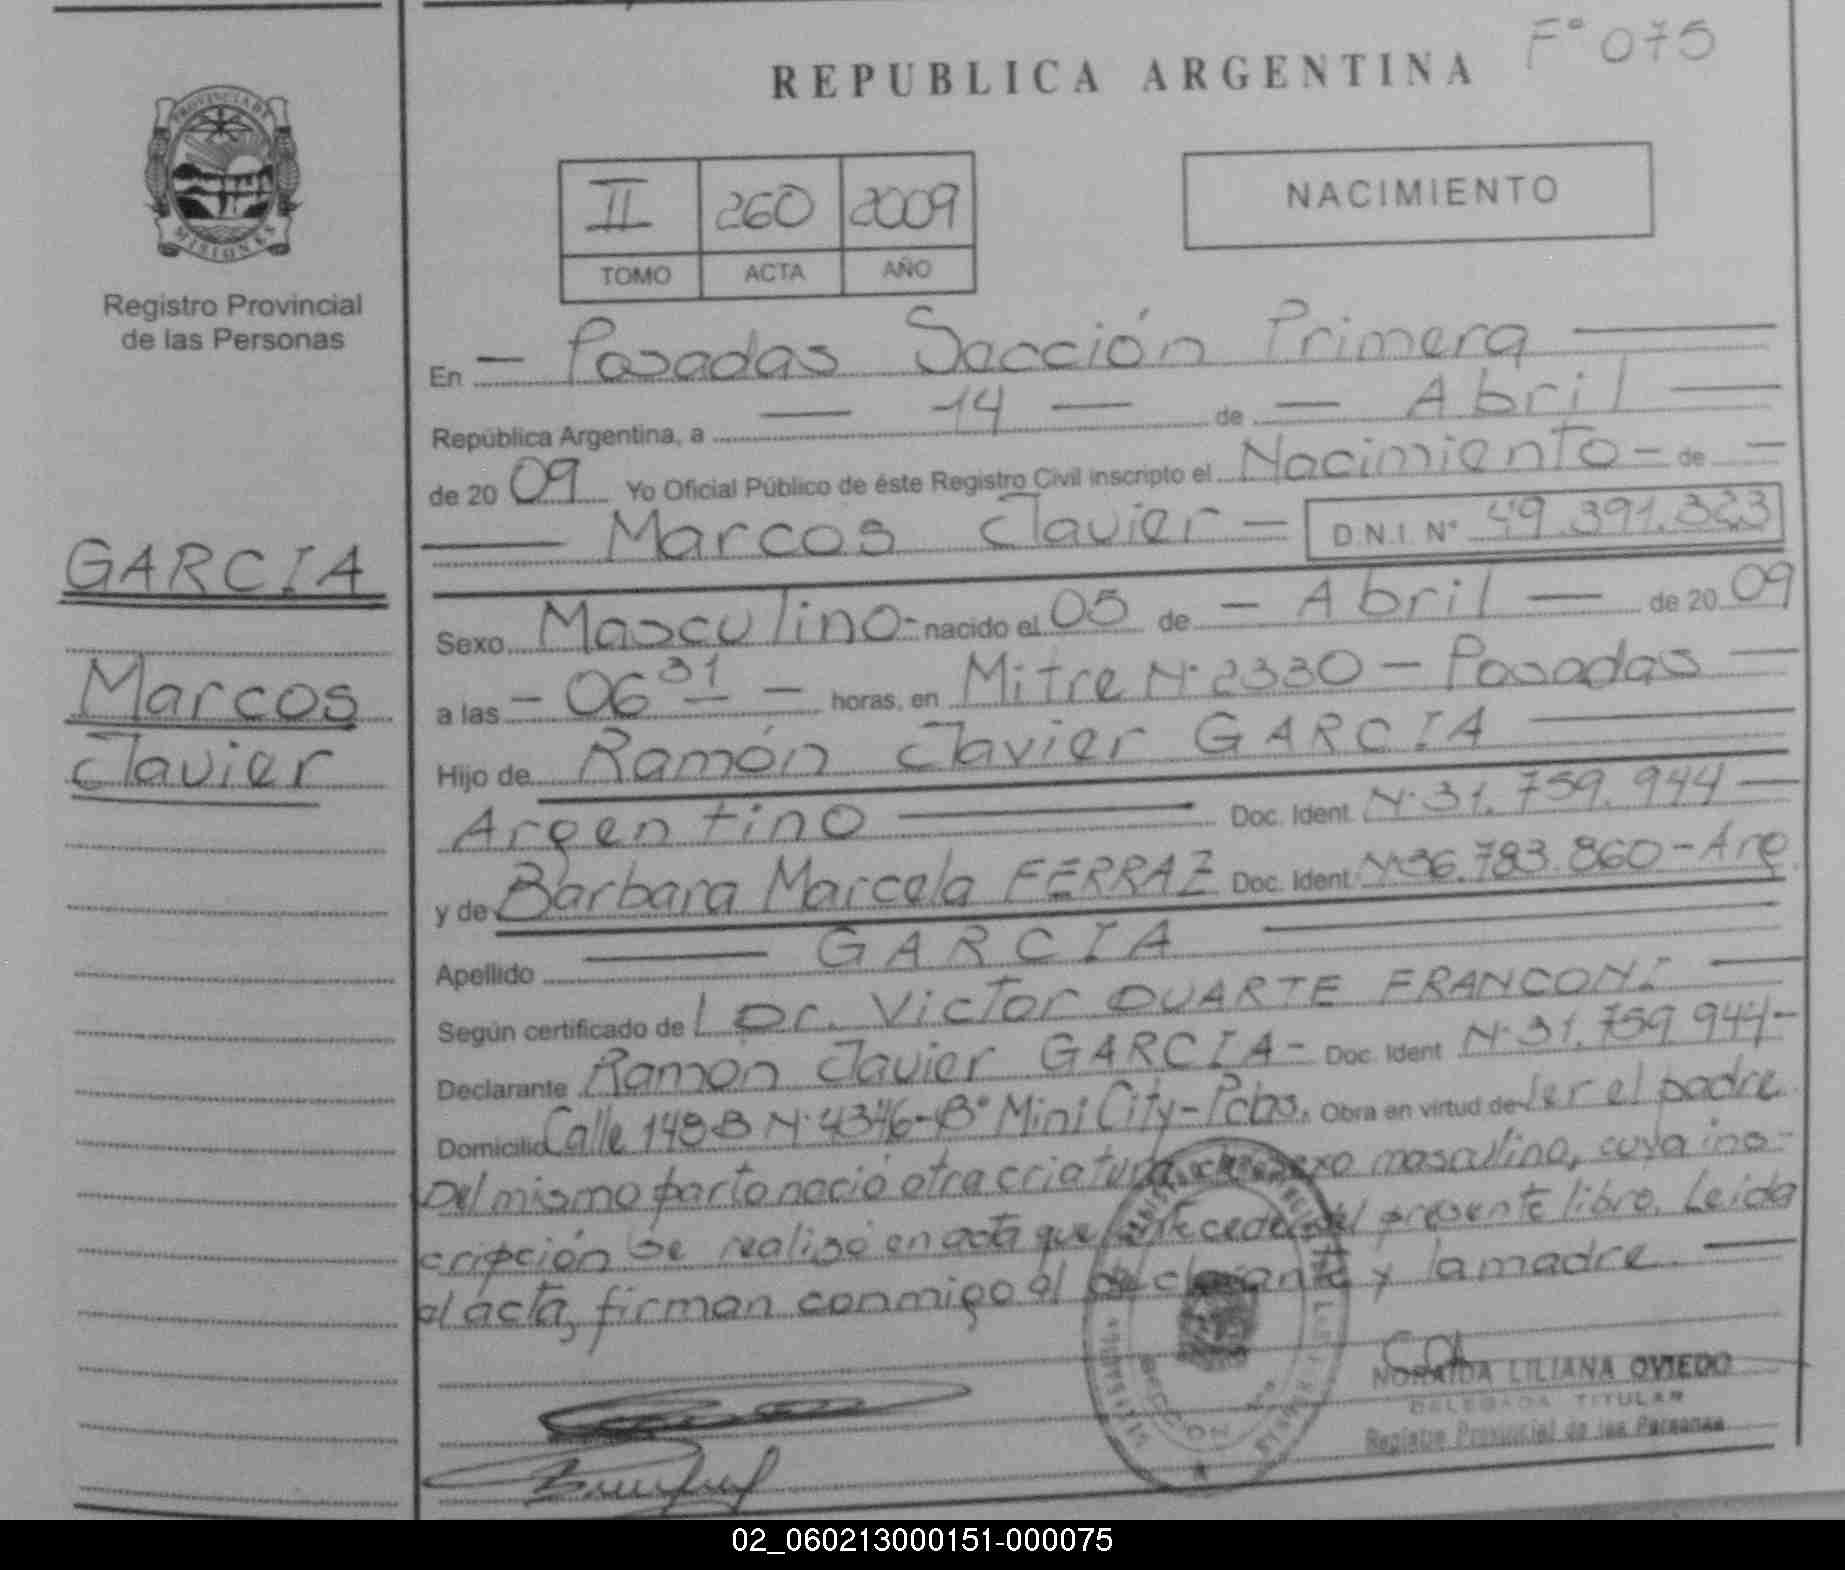 F° 075
REPUBLICA ARGENTINA
PROVINCIA DE
MISIONES
Registro Provincial
de las Personas
II 260 2009
TOMO ACTA AÑO
NACIMIENTO
En — Posadas Sección Primera —
República Argentina, a — 14 — de — Abril —
de 20 09 Yo Oficial Público de éste Registro Civil inscripto el Nacimiento - de —
— Marcos Javier — D.N.I. N° 49.391.323
GARCIA
Marcos
Javier
Sexo Masculino - nacido el 05 de — Abril — de 20 09
a las — 06 31 — horas, en Mitre N° 2330 — Posadas —
Hijo de Ramón Javier GARCIA —
Argentino — Doc. Ident. N° 31.759.944 —
y de Barbara Marcela FERRAZ Doc. Ident. N° 36.783.860 - Arg.
Apellido — GARCIA —
Según certificado del Dr. Victor DUARTE FRANCONI —
Declarante Ramon Javier GARCIA - Doc. Ident N° 31.759.944 -
Domicilio Calle 148-B N° 4346 - B° Mini City - Pdas. Obra en virtud de ser el padre.
Del mismo parto nació otra criatura de sexo masculino, cuya ins-
cripción se realizó en acta que antecede del presente libro. Leida
el acta, firman conmigo el declarante y la madre. —
NORAIDA LILIANA OVIEDO
DELEGADA TITULAR
Registro Provincial de las Personas
02_060213000151-000075